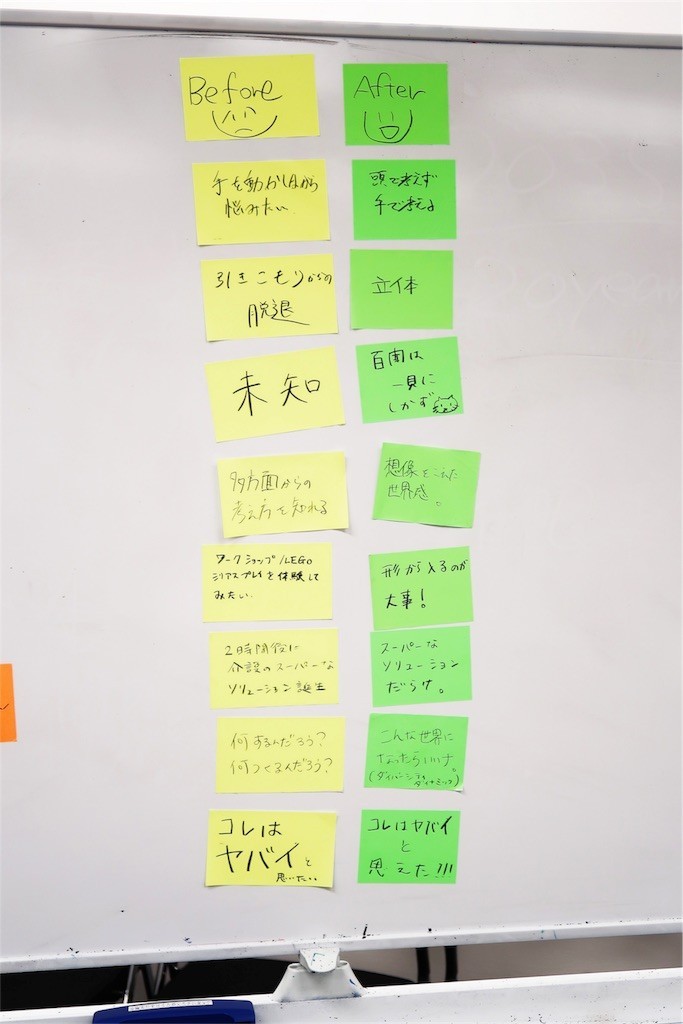 Before
After
手を動かしながら
悩みたい
頭で考えず
手で考えよ
引きこもりからの
脱退
立体
未知
百聞は
一見に
しかず
多方面からの
考え方を知れる
想像をこえた
世界感。
ワークショップ/LEGO
シリアスプレイを体験して
みたい.
形から入るのが
大事!
2時間後に
介護のスーパーな
ソリューション誕生
スーパーな
ソリューション
だらけ。
何するんだろう?
何つくるんだろう?
こんな世界に
なったらいいナ。
(ダイバーシティ&
ダイナミック)
コレは
ヤバイと
思いた..
コレはヤバイ
と
思えた!!!